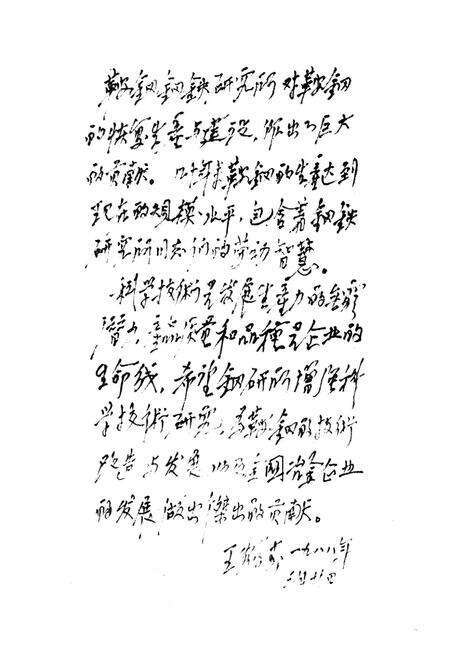 鞍钢钢铁研究所对鞍钢
的恢复生产与建设，作出了巨大
的贡献。四十年来鞍钢的生产达到
现在的规模水平，包含着钢铁
研究所同志们的劳动智慧。
科学技術是发展生产力的
潜力，产品质量和品種是企业的
生命线，希望钢研所增强科
学技術研究，为鞍钢的技術
改造与发展以及全国冶金企业
的发展做出傑出的贡献。
王 一九八八年